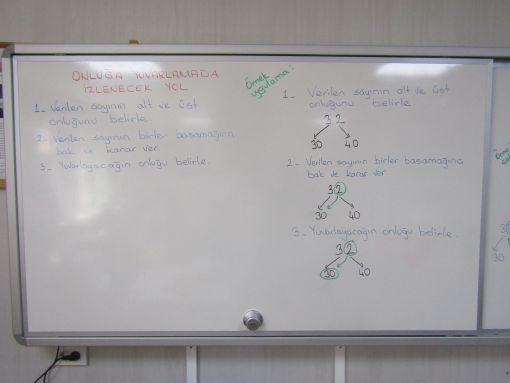 ONLUĞA YUVARLAMADA
İZLENECEK YOL
1_ Verilen sayının alt ve üst
onluğunu belirle.
2_ Verilen sayının birler basamağına
bak ve karar ver.
3_ Yuvarlayacağın onluğu belirle.
Örnek
uygulama:
1_ Verilen sayının alt ve üst
onluğunu belirle.
32
30 40
2_ Verilen sayının birler basamağına
bak ve karar ver
32
30 40
3_ Yuvarlayacağın onluğu belirle.
32
30 40
3
30